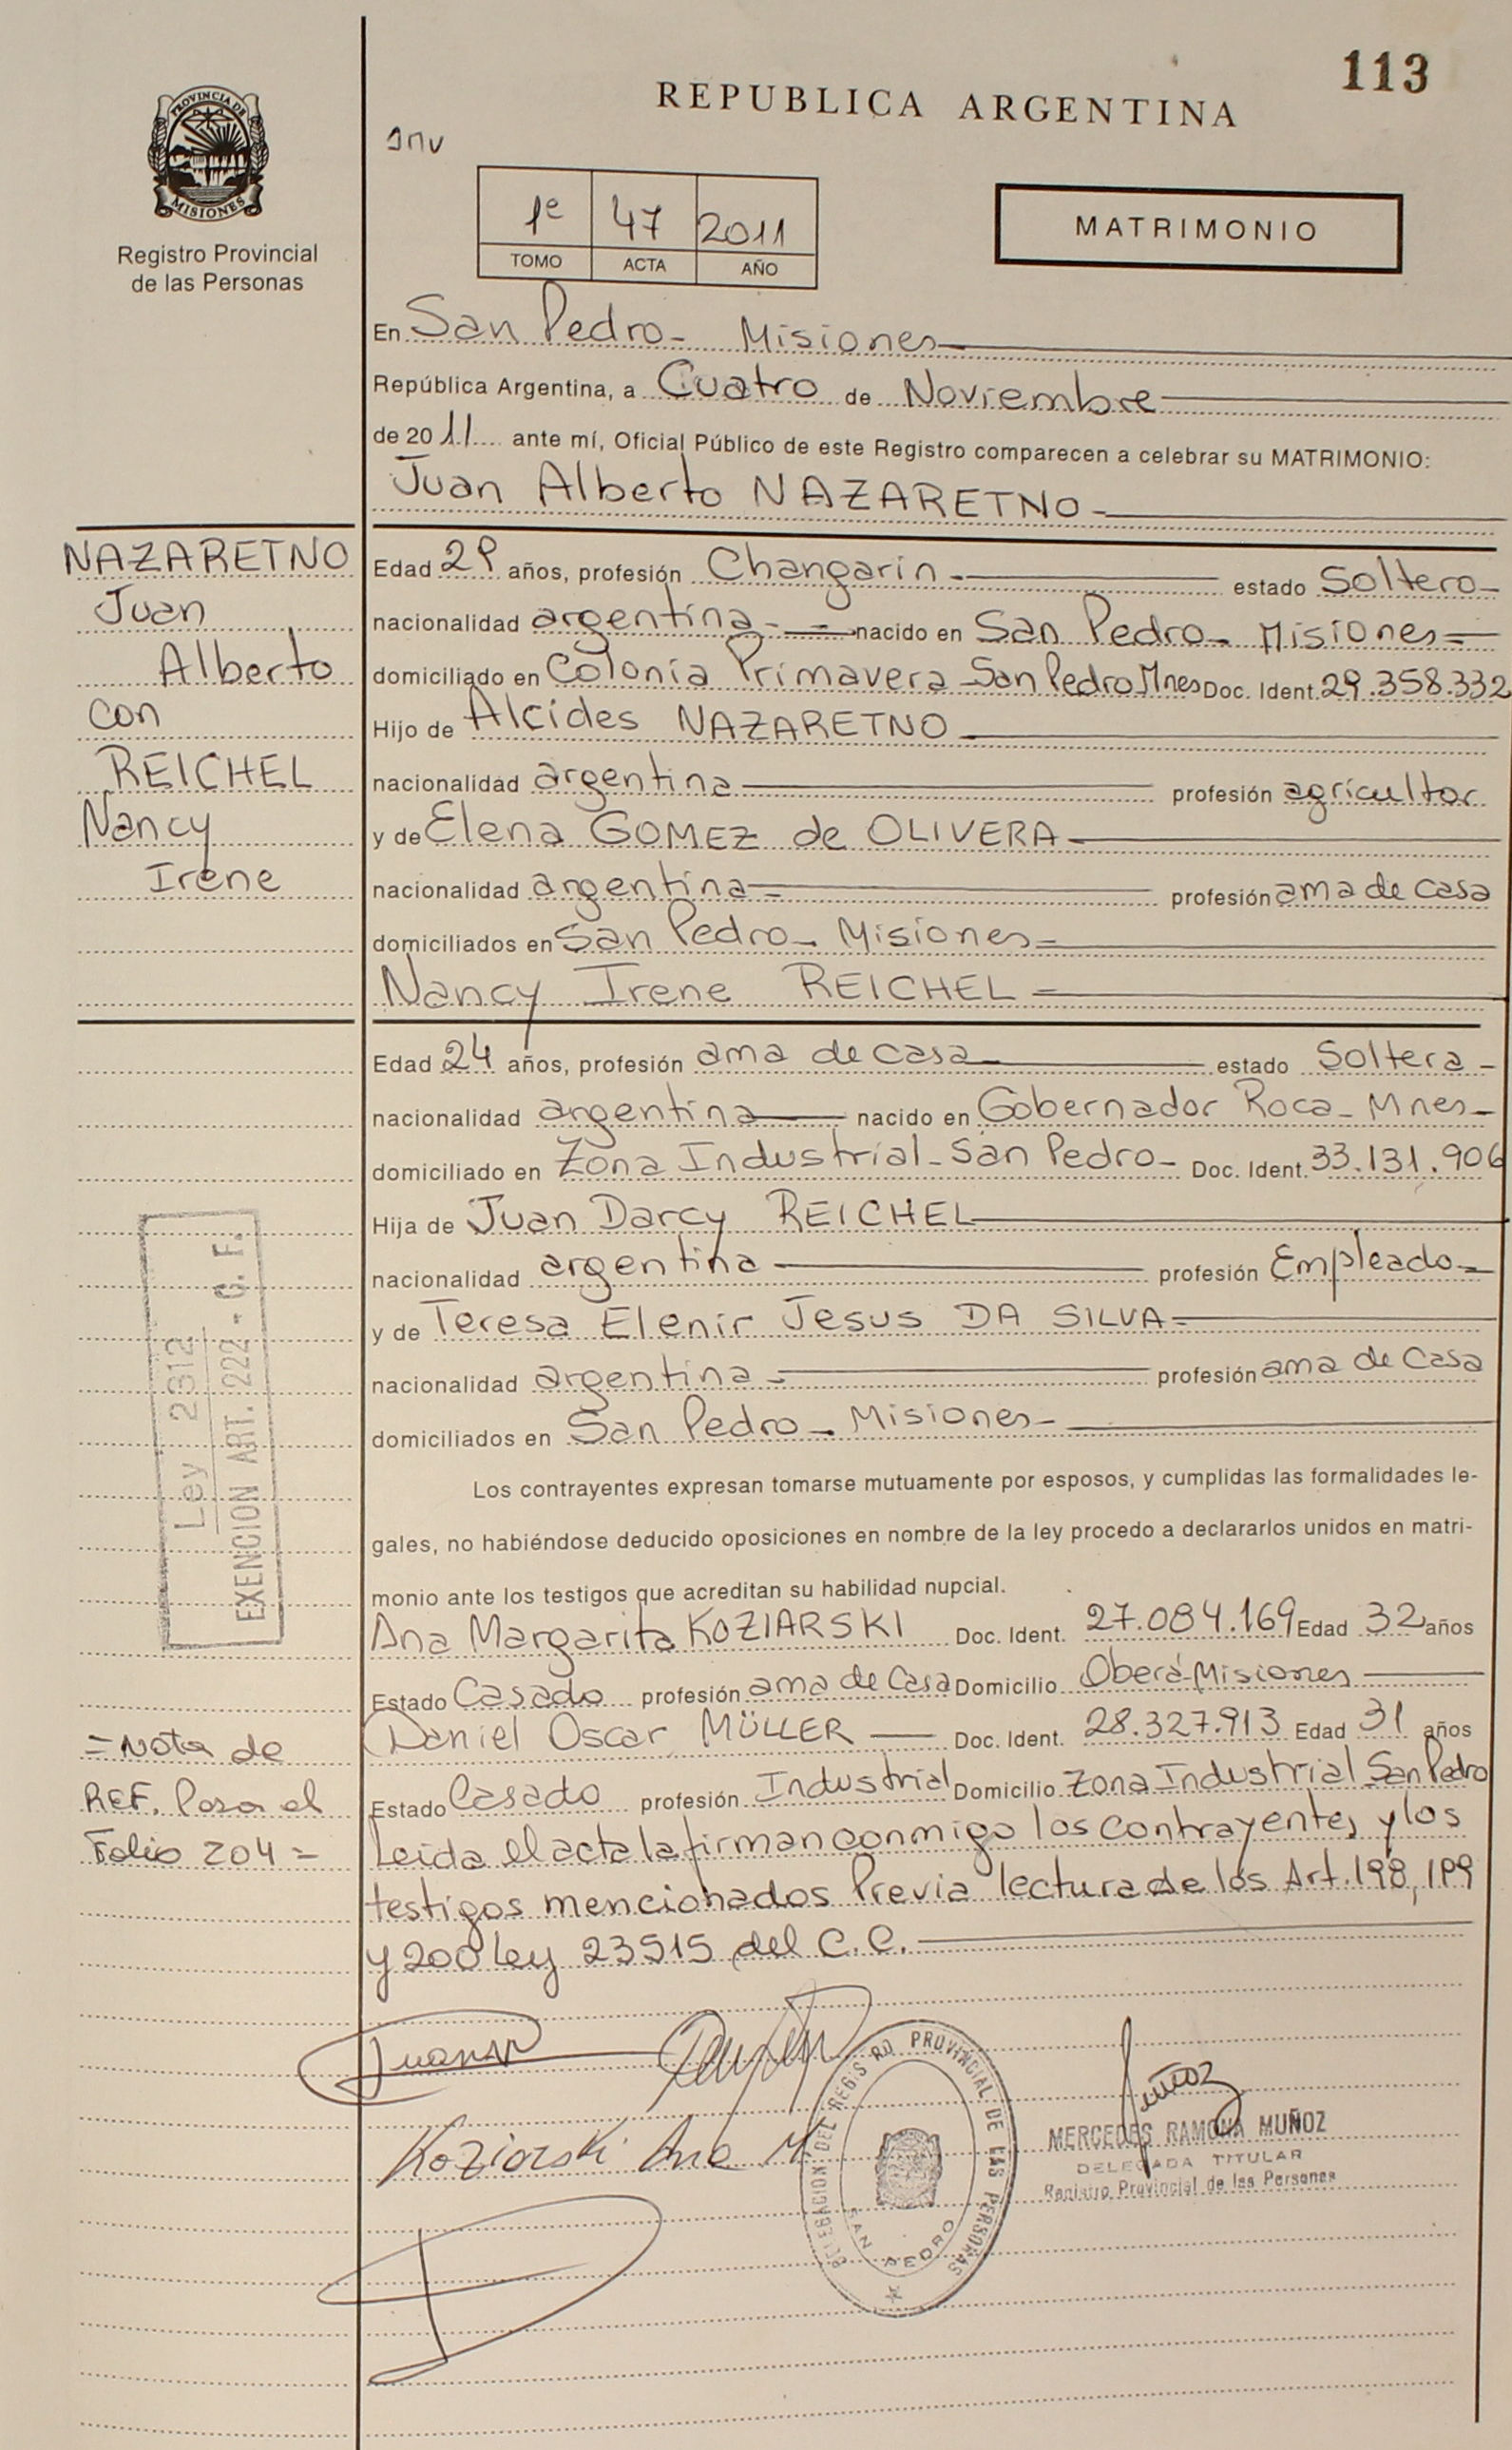 113
REPUBLICA ARGENTINA
PROVINCIA DE
MISIONES
Registro Provincial
de las Personas
1º 47 2011
TOMO ACTA AÑO
MATRIMONIO
En San Pedro - Misiones
República Argentina, a Cuatro de Noviembre
de 2011 ante mí, Oficial Público de este Registro comparecen a celebrar su MATRIMONIO:
Juan Alberto NAZARETNO
NAZARETNO
Juan
Alberto
con
REICHEL
Nancy
Irene
Edad 29 años, profesión Changarin estado Soltero
nacionalidad argentina nacido en San Pedro - Misiones
domiciliado en Colonia Primavera - San Pedro Mnes Doc. Ident. 29.358.332
Hijo de Alcides NAZARETNO
nacionalidad argentina profesión agricultor
y de Elena GOMEZ de OLIVERA
nacionalidad argentina profesión ama de casa
domiciliados en San Pedro - Misiones
Nancy Irene REICHEL
Edad 24 años, profesión ama de casa estado Soltera
nacionalidad argentina nacido en Gobernador Roca - Mnes
domiciliado en Zona Industrial - San Pedro - Doc. Ident. 33.131.906
Hija de Juan Darcy REICHEL
nacionalidad argentina profesión Empleado
y de Teresa Elenir Jesus DA SILVA
nacionalidad argentina profesión ama de Casa
domiciliados en San Pedro - Misiones
Ley 2312
EXENCION ART. 222 - C. F.
Los contrayentes expresan tomarse mutuamente por esposos, y cumplidas las formalidades le-
gales, no habiéndose deducido oposiciones en nombre de la ley procedo a declararlos unidos en matri-
monio ante los testigos que acreditan su habilidad nupcial.
Ana Margarita KOZIARSKI Doc. Ident. 27.084.169 Edad 32 años
Estado Casado profesión ama de Casa Domicilio Oberá-Misiones
Daniel Oscar MÜLLER Doc. Ident. 28.327.913 Edad 31 años
Estado Casado profesión Industrial Domicilio Zona Industrial San Pedro
= Nota de
REF. Pasa el
Folio 204 =
Leida el acta la firman conmigo los contrayentes y los
testigos mencionados Previa lectura de los Art. 198, 199
y 200 ley 23515 del C.C.
Koziarski Ana M.
DELEGACION DEL REGISTRO PROVINCIAL DE LAS PERSONAS
SAN PEDRO
Muñoz
MERCEDES RAMONA MUÑOZ
DELEGADA TITULAR
Registro Provincial de las Personas